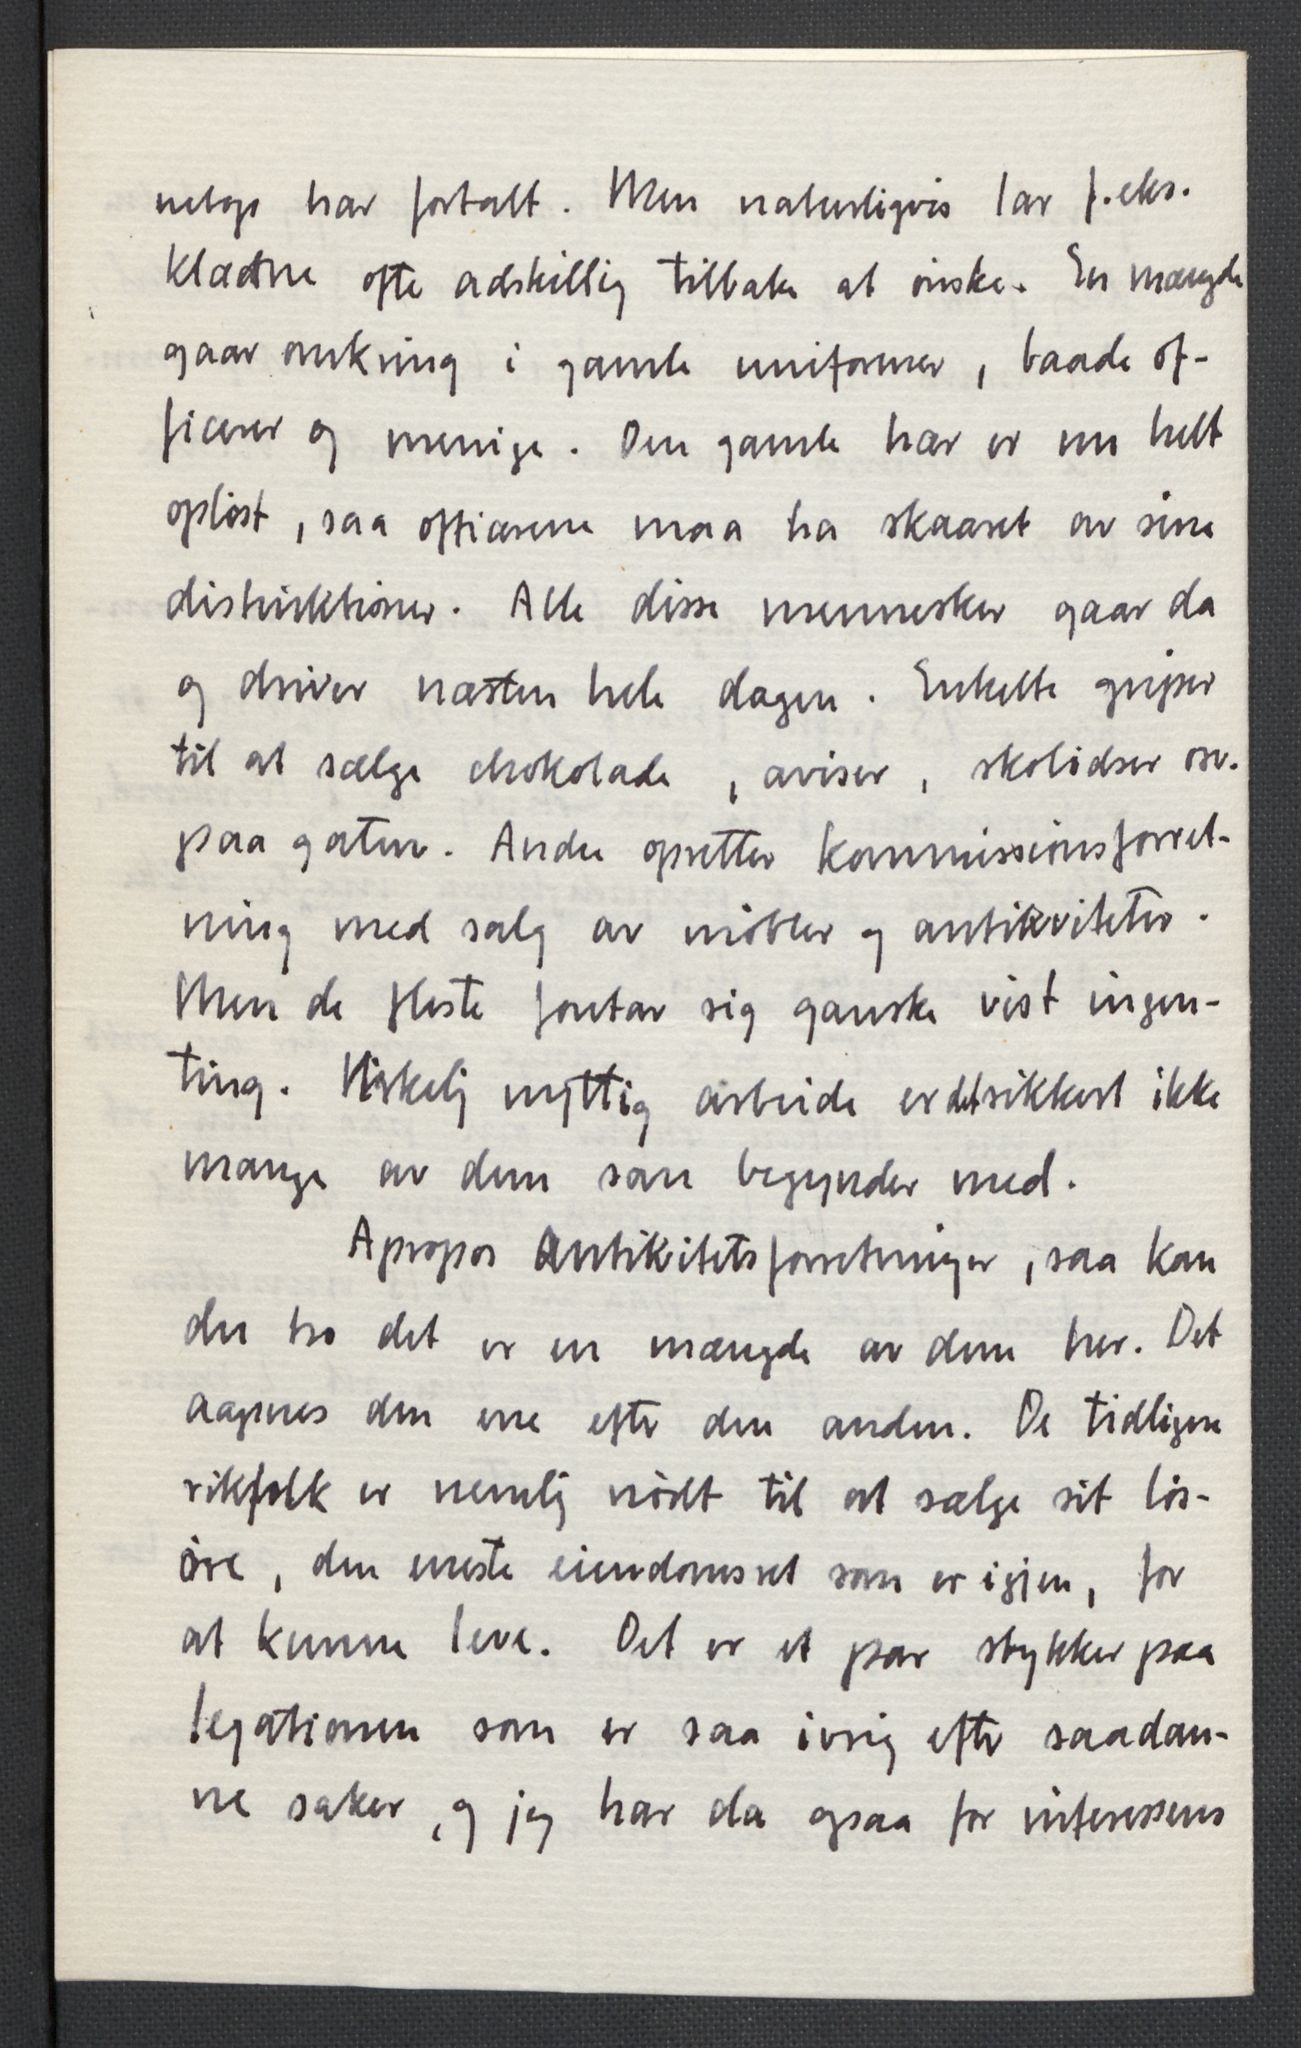 netop har fortalt. Men naturligvis lar f.eks.
klædrne ofte adskillig tilbake at ønske. En mængde
gaar omkring i gamle uniformer, baade of-
ficerer og menige. Den gamle hær er nu helt
opløst, saa officerene maa ha skaaret av sine
distinktioner. Alle disse mennesker gaar da
og driver næsten hele dagen. Enkelte griper
til at sælge chokolade, aviser, skolidser osv.
paa gaten. Andre opretter kommissionsforret-
ning med salg av møbler og antikviteter.
Men de fleste foretar sig ganske vist ingen-
ting. Virkelig nyttig arbeide er det sikkert ikke
mange av dem som begynder med.
Apropos Antikvitetsforretninger, saa kan
du tro det er en mængde av dem her. Det
aapnes den ene efter den anden. De tidligere
rikfolk er nemlig nødt til at sælge sit løs-
øre, den eneste eiendomsret som er igjen, for
at kunne leve. Det er et par stykker paa
legationen som er saa ivrig efter saadan-
ne saker, og jeg har da ogsaa for interessens